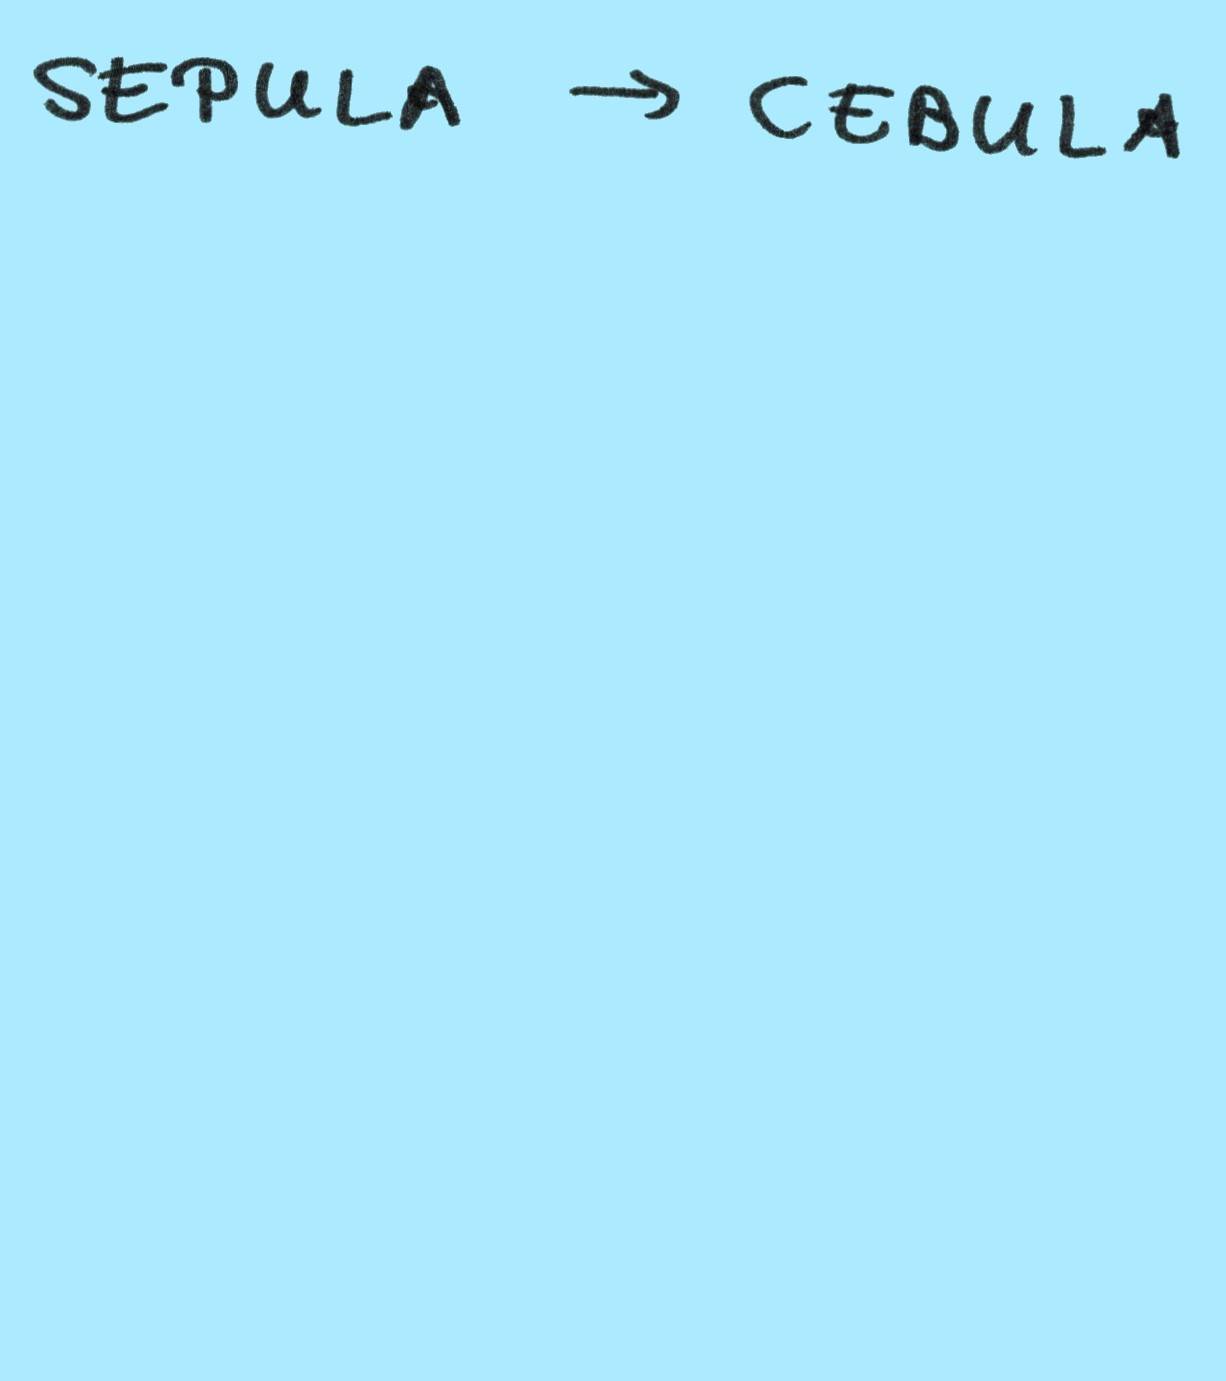 SEPULA → CEBULA